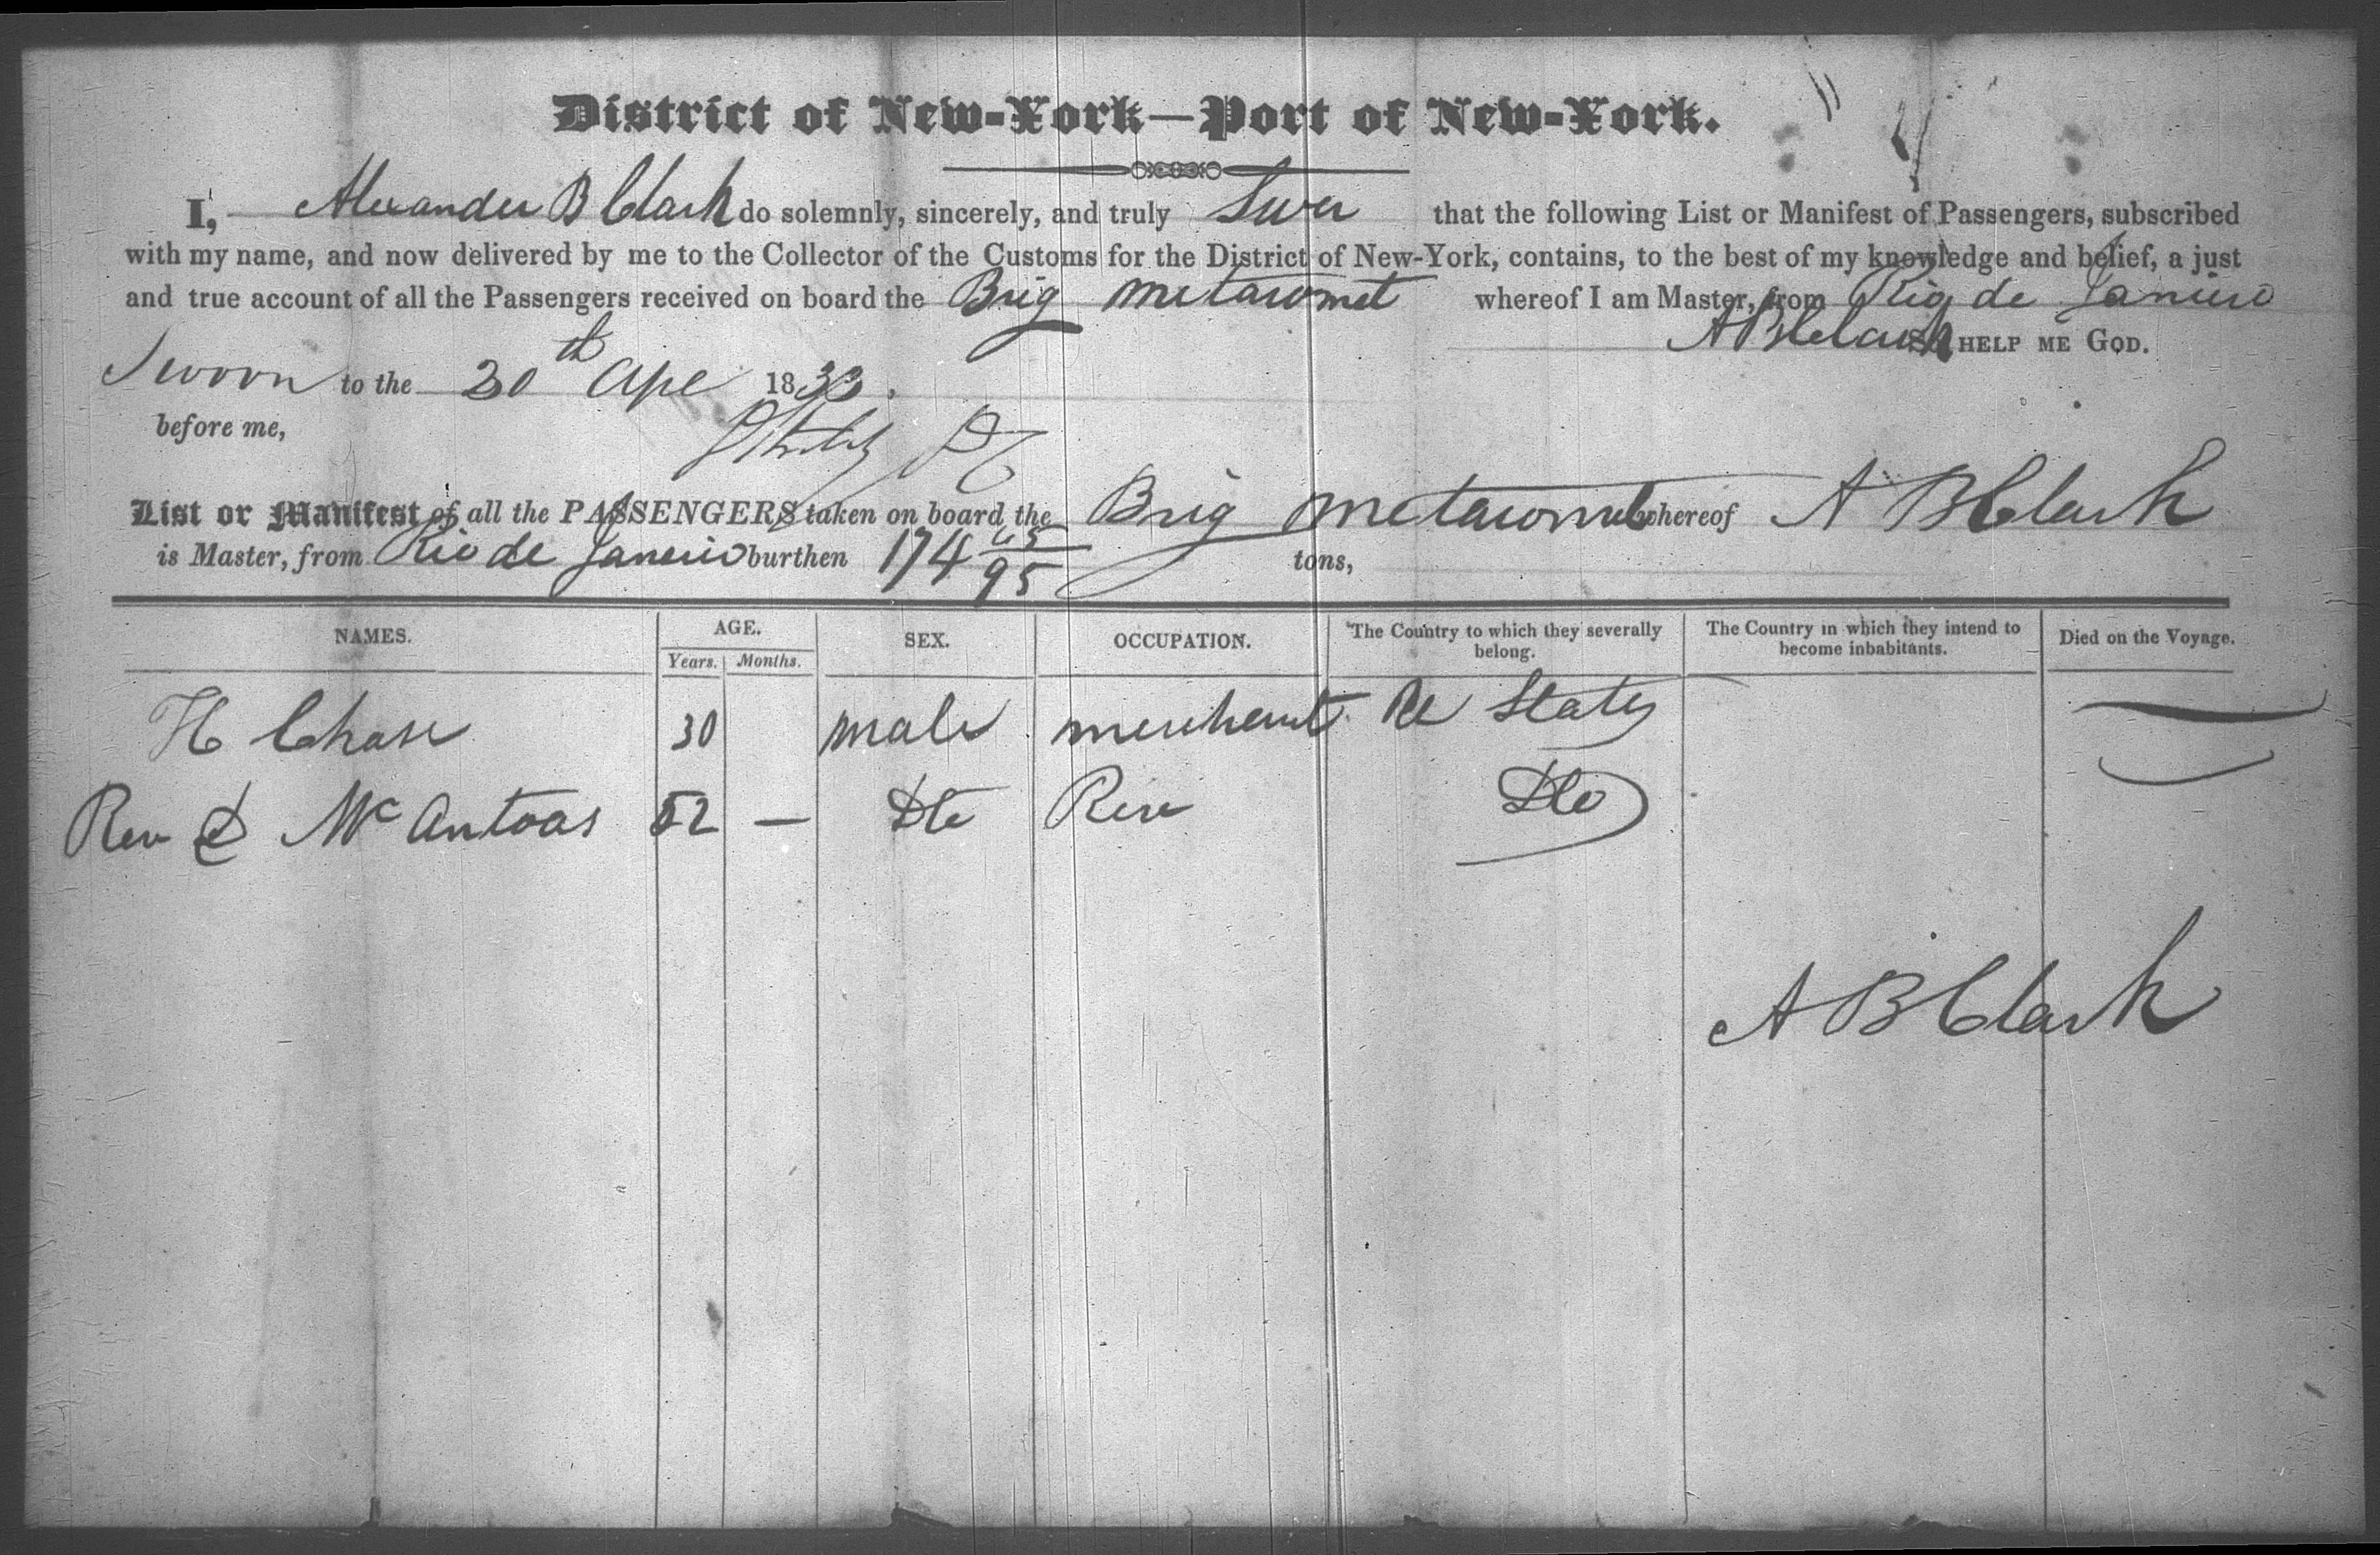 District of New-York—Port of New-York.
I, Alexander B Clark do solemnly, sincerely, and truly Swer that the following List or Manifest of Passengers, subscribed
with my name, and now delivered by me to the Collector of the Customs for the District of New-York, contains, to the best of my knowledge and belief, a just
and true account of all the Passengers received on board the Brig Metacomet whereof I am Master, from Rio de Janeiro
A B Clark HELP ME GOD.
Sworn to the 20th Apl 1833.
before me,
List or Manifest of all the PASSENGERS taken on board the Brig Metacomet whereof A B Clark
is Master, from Rio de Janerio burthen 174 65/95 tons,
NAMES. AGE. SEX. OCCUPATION. The Country to which they severally belong. The Country in which they intend to become inhabitants. Died on the Voyage.
Years. Months.
H Chase 30 male merchant U States
Rev McAntoas 52 — Dto Rev Dto
A B Clark